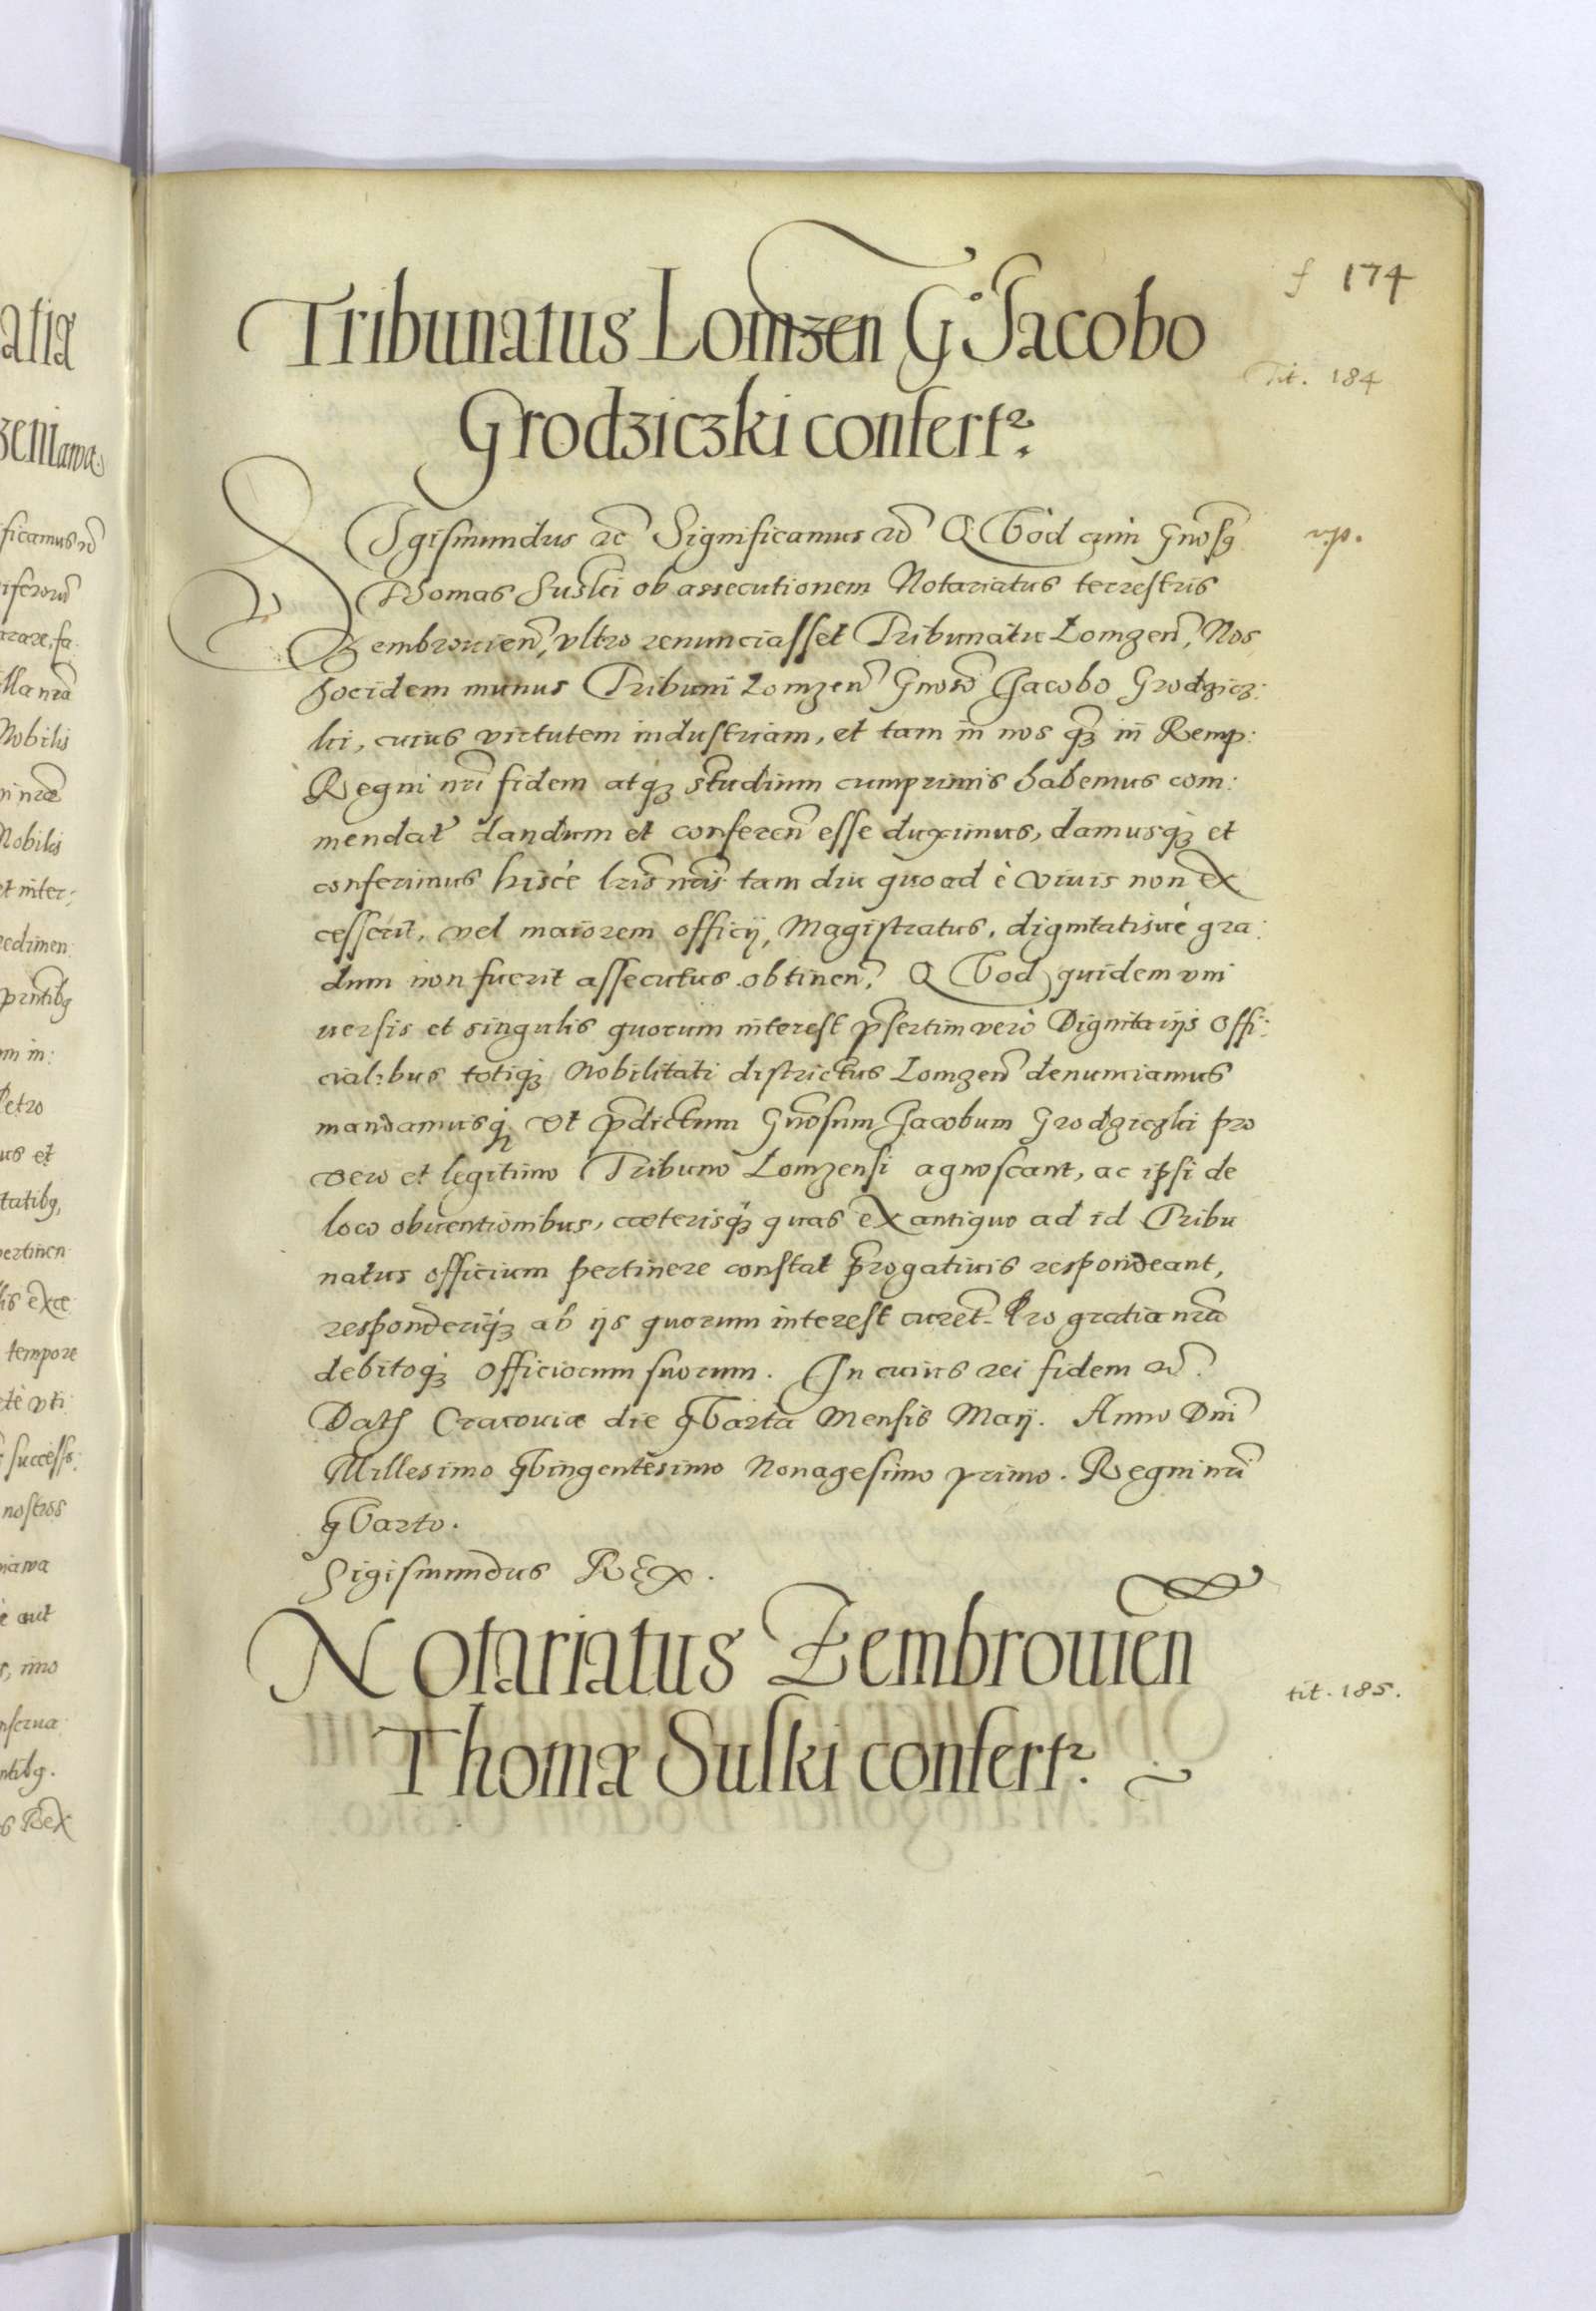 f 174
Tribunatus Lomzen G° Jacobo
Tit. 184
Grodziczki confertr.
SIgismundus &c Significamus &c Quod cum Gnosq
v.p.
Thomas Suski ob assecutionem Notariatus terrestris
Zembrouien, vltro renunciasset Tribunatu Lomzen, Nos
hocidem munus Tribuni Lomzen Gnoso Jacobo Grodzicz:
ki, cuius virtutem industriam, et tam in nos q̃z in Remp:
Regni nri fidem atqz studium cumprimis habemus com:
mendat dandum et conferen esse duximus, damusqz et
conferimus hisce lris nris tam diu quoad è viuis non ex
cesserit, vel maiorem officij, Magistratus, dignitatisue gra:
dum non fuerit assecutus obtinen. Quod quidem vni
uersis et singulis quorum interest p̃sertim vero Dignitarijs Offi:
cialibus totiqz Nobilitati districtus Lomzen denunciamus
mandamusq; vt p̃dictum Gnosum Jacobum Grodziczki pro
vero et legitimo Tribuno Lomzensi agnoscant, ac ipsi de
loco obuentionibus, cæterisqz quas ex antiquo ad id Tribu
natus officium pertinere constat p̃rogatiuis respondeant,
responderiqz ab ijs quorum interest curent. Pro gratia nra
debitoqz officiorum suorum. In cuius rei fidem &c.
Dat Cracouiæ die quarta Mensis Maij. Anno Dni
Millesimo quingentesimo Nonagesimo primo. Regni nri
quarto.
Sigismundus REx.
Notariatus Zembrouien
tit. 185.
Thomæ Suski confertr.